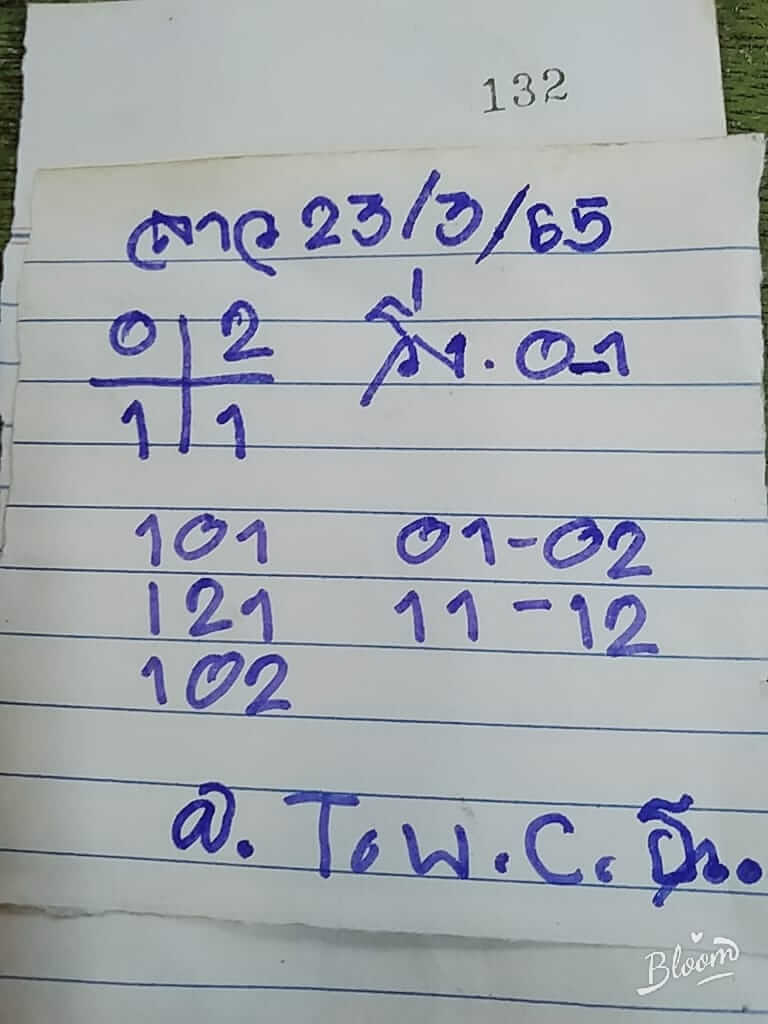 132
ลาว 23/3/65
0 2 วิ่ง. 0-1
1 1
101 01-02
121 11-12
102
T. W. C.
Bloom